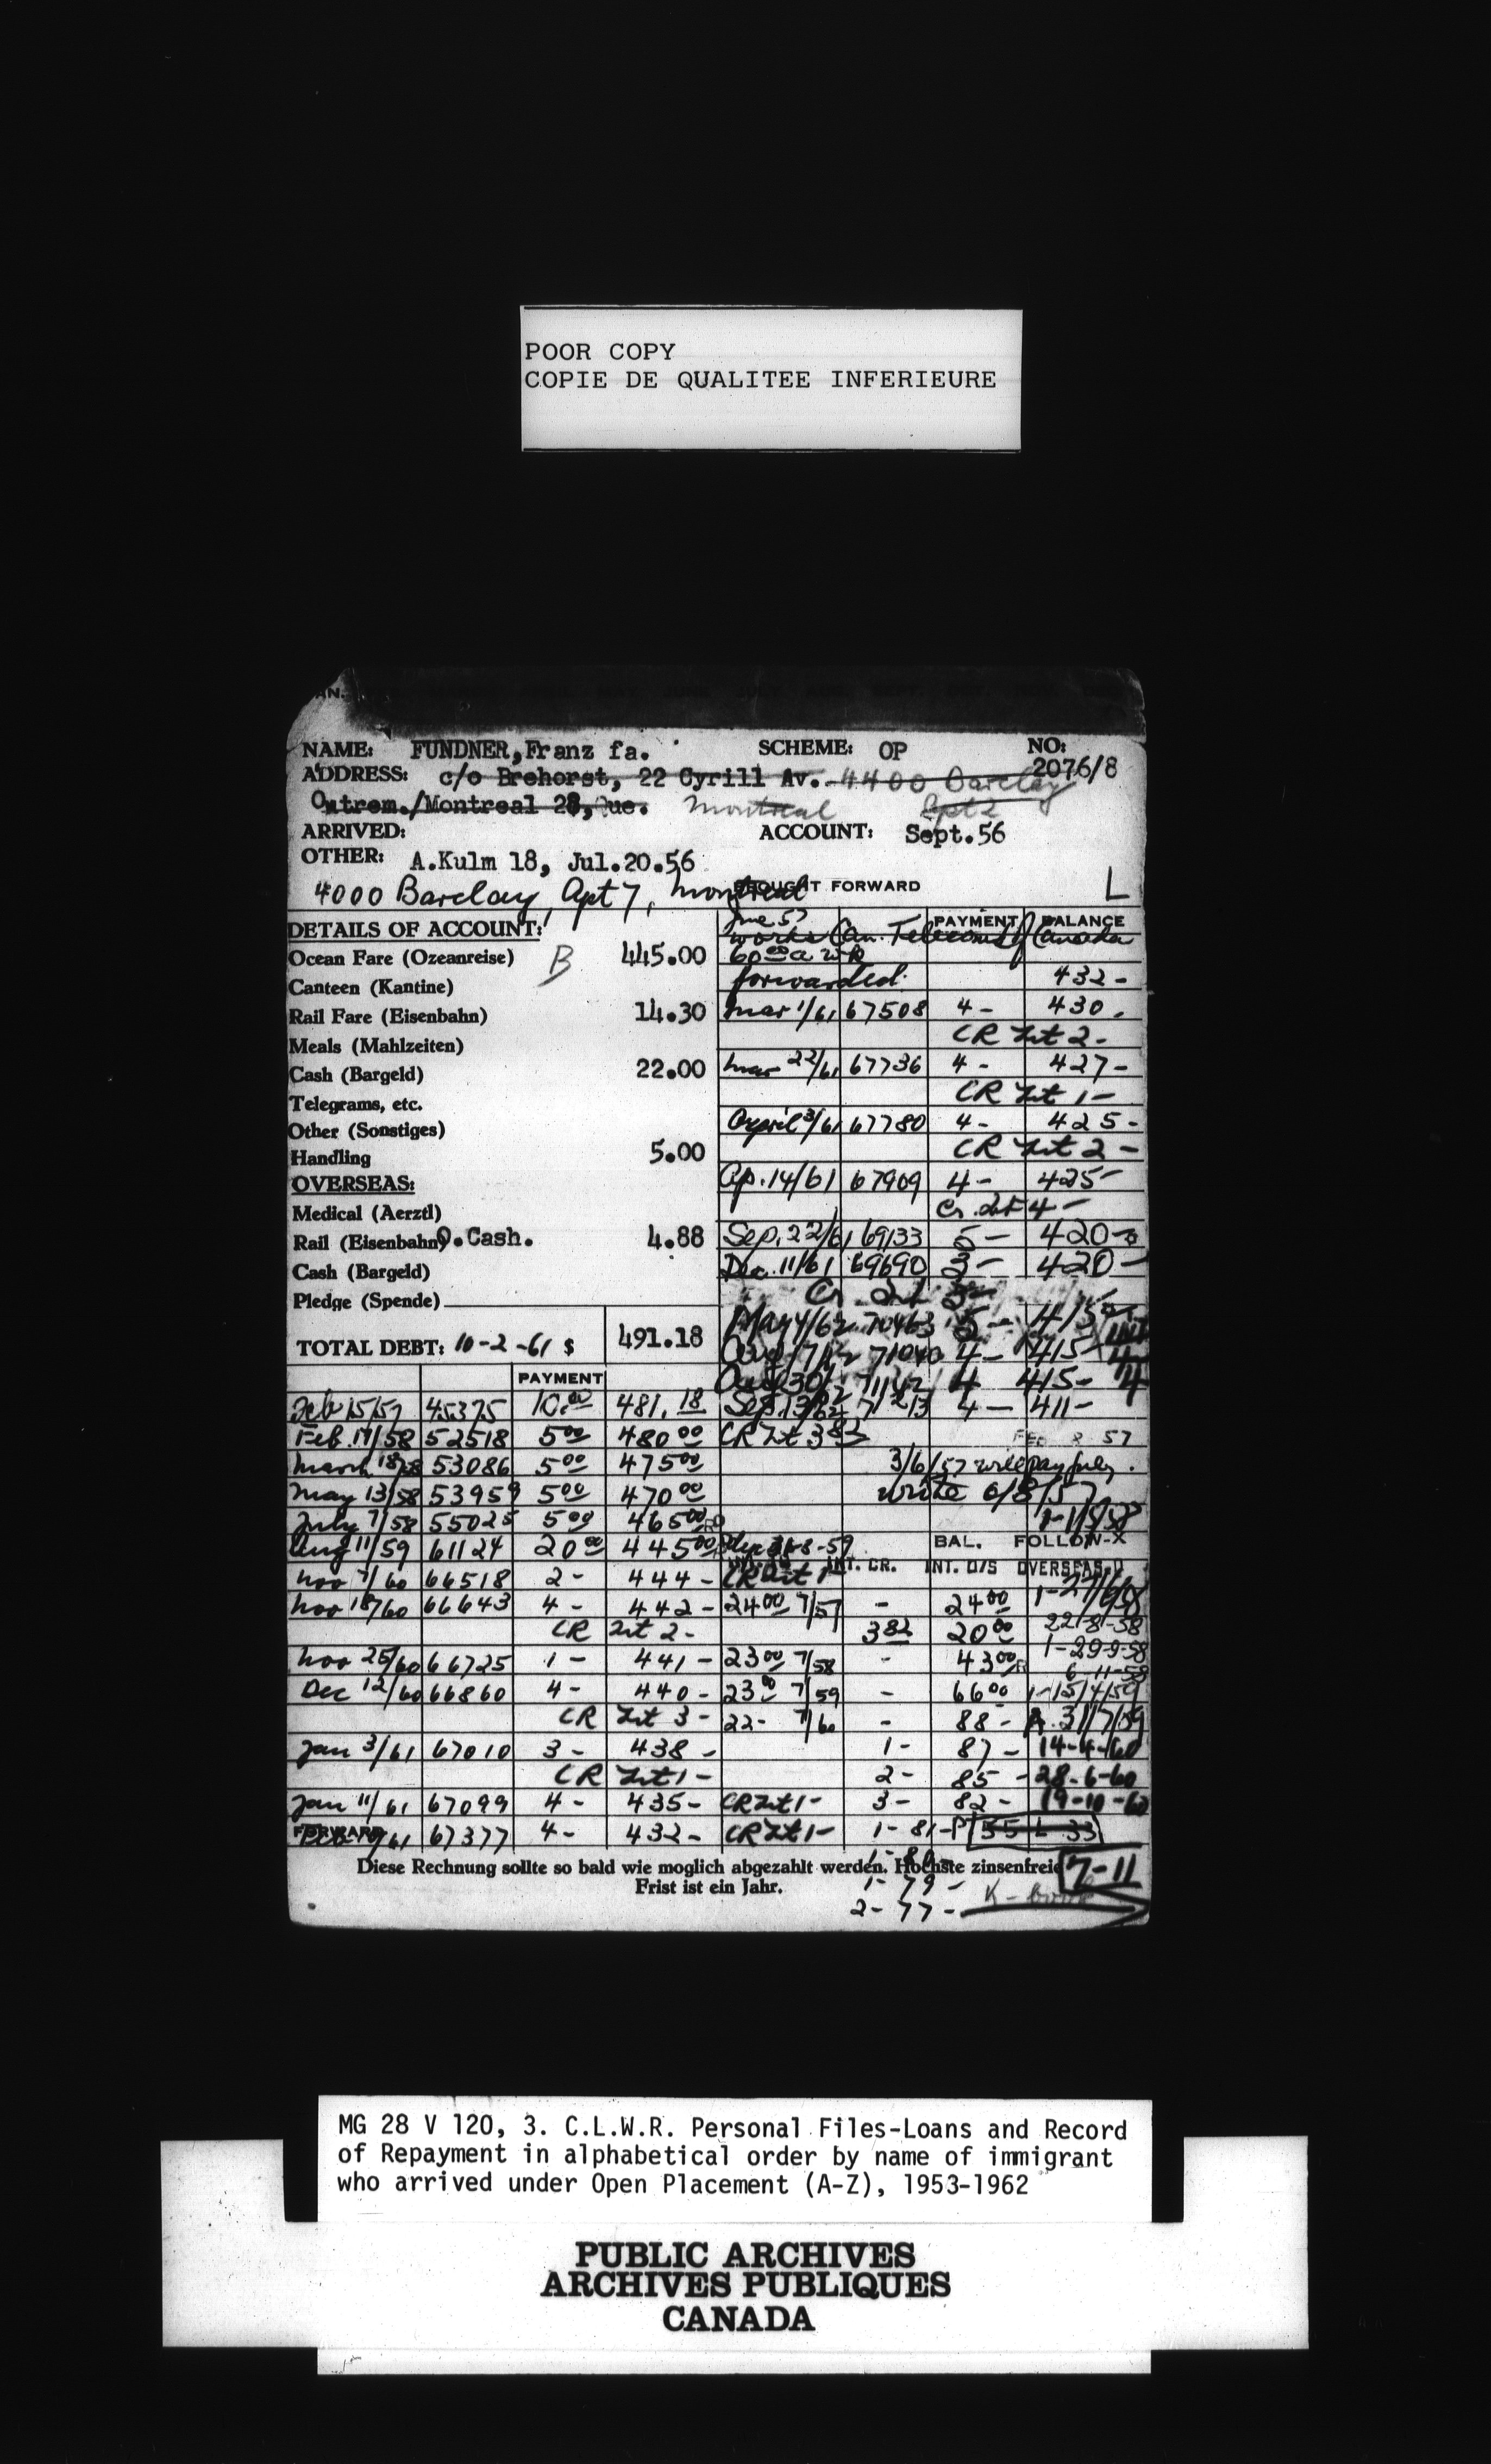 POOR COPY
COPIE DE QUALITEE INFERIEURE
NAME: FUNDNER, Franz fa. SCHEME: OP NO: 2076/8
ADDRESS: c/o Brehorst, 22 Cyrill Av. 4400 Barclay
Outrem./Montreal 28, Que. Montreal Apt 2
ARRIVED: ACCOUNT: Sept.56
OTHER: A.Kulm 18, Jul.20.56
4000 Barclay, Apt 7, Montreal FORWARD L
DETAILS OF ACCOUNT:
Ocean Fare (Ozeanreise) B 445.00
Canteen (Kantine)
Rail Fare (Eisenbahn) 14.30
Meals (Mahlzeiten)
Cash (Bargeld) 22.00
Telegrams, etc.
Other (Sonstiges)
Handling 5.00
OVERSEAS:
Medical (Aerztl)
Rail (Eisenbahn) O.Cash. 4.88
Cash (Bargeld)
Pledge (Spende)
TOTAL DEBT: 10-2-61 $ 491.18
PAYMENT
Feb 15/57 45375 10.00 481.18
Feb. 17/58 52518 5 00 480 00 CR Int 3 82
March 18/58 53086 5 00 475 00
May 13/58 53959 5 00 470 00
July 7/58 55025 5 00 465 00
Aug 11/59 61124 20 00 445 00
Nov 7/60 66518 2- 444- CR Int 1-
Nov 18/60 66643 4- 442-
CR Int 2-
Nov 25/60 66725 1- 441-
Dec 12/60 66860 4- 440-
CR Int 3-
Jan 3/61 67010 3- 438-
CR Int 1-
Jan 11/61 67099 4- 435- CR Int 1-
FORWARD 67377 4- 432- CR Int 1-
June 57 PAYMENT BALANCE
works Can. Telecoms of Canada
60 00 a wk
forwarded. 432-
Mar 1/61 67508 4- 430.
CR Int 2-
Mar 22/61 67736 4- 427-
CR Int 1-
April 3/61 67780 4- 425-
CR Int 2-
Ap. 14/61 67909 4- 425-
Cr. Int 4-
Sep. 22/61 69133 5- 420-
Dec. 11/61 69690 3- 420-
Cr Int 3-
May 4/62 70463 5- 415-
Aug 7/62 71040 4- 415-
Aug 30/62 71142 4 415- 4
Sep. 13/62 71213 4- 411-
FEB 8 57
3/6/57 will pay July.
write 6/8/57
BAL. FOLLOW-X
INT. CR. INT. O/S OVERSEAS.
24 00 7/57 - 24 00
3 82 20 00 22-8-58
23 00 7/58 - 43 00 1-29-9-58
6-11-58
23 00 7/59 - 66 00 1-15/4/59
22- 7/60 - 88- 31/7/59
1- 87- 14-4-60
2- 85- 28-6-60
3- 82- 19-10-60
1- 81-
Diese Rechnung sollte so bald wie moglich abgezahlt werden. Hochste zinsenfreie 7-11
Frist ist ein Jahr. 1- 79-
2- 77- K-book
MG 28 V 120, 3. C.L.W.R. Personal Files-Loans and Record
of Repayment in alphabetical order by name of immigrant
who arrived under Open Placement (A-Z), 1953-1962
PUBLIC ARCHIVES
ARCHIVES PUBLIQUES
CANADA